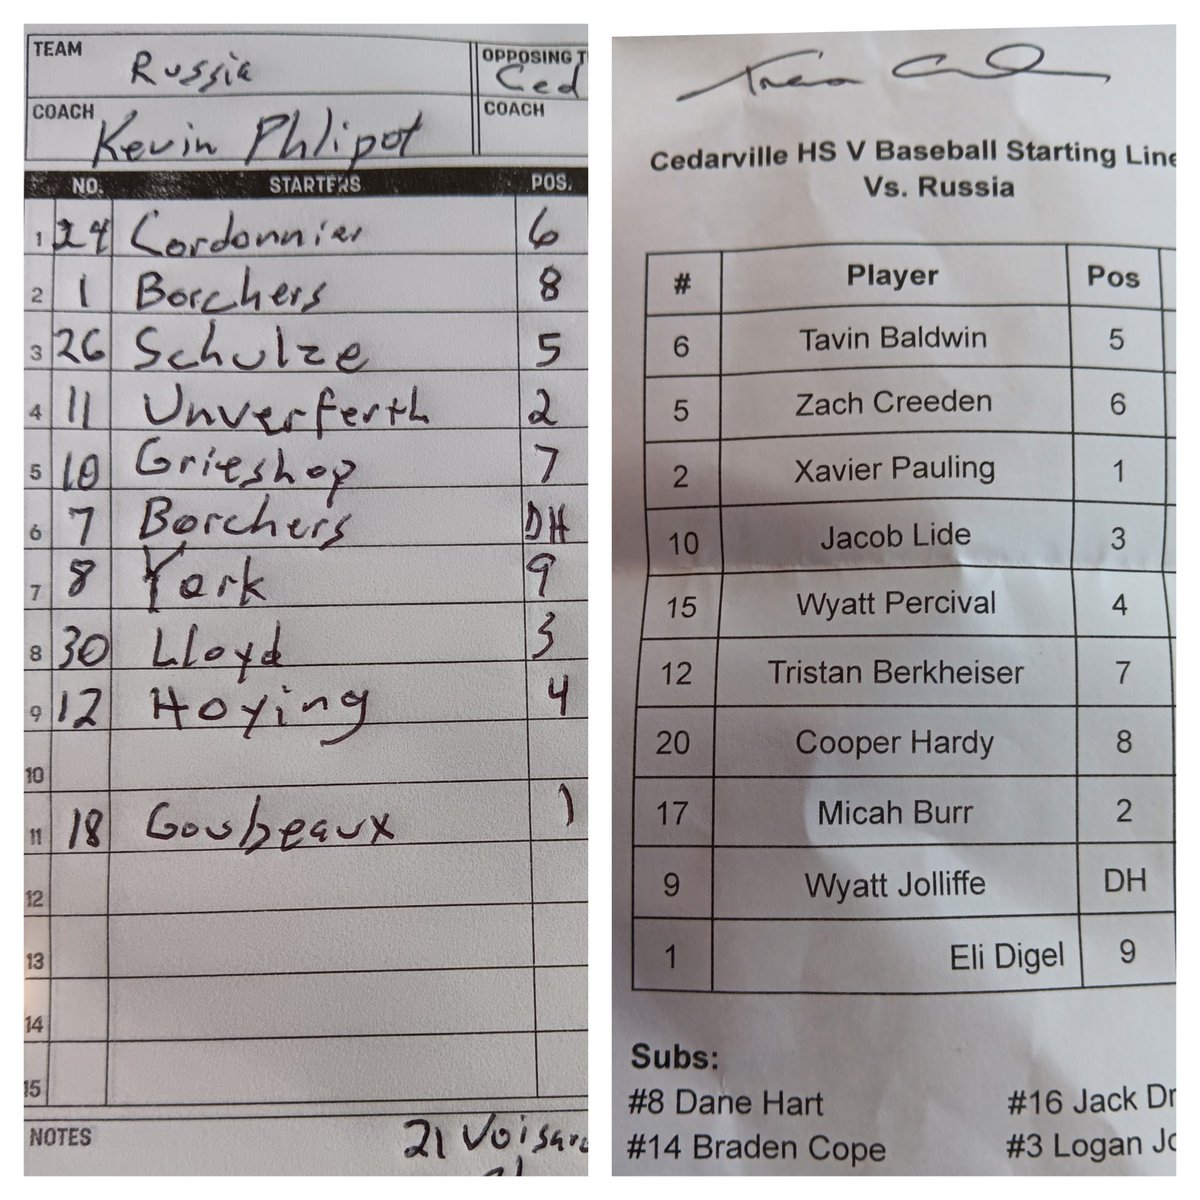 TEAM Russia OPPOSING T
Ced
COACH Kevin Phlipot COACH
NO. STARTERS POS.
1 24 Cordonnier 6
2 1 Borchers 8
3 26 Schulze 5
4 11 Unverferth 2
5 10 Grieshop 7
6 7 Borchers DH
7 8 York 9
8 30 Lloyd 3
9 12 Hoying 4
10
11 18 Goubeaux 1
12
13
14
15
NOTES 21 Voisard
Cedarville HS V Baseball Starting Line
Vs. Russia
# Player Pos
6 Tavin Baldwin 5
5 Zach Creeden 6
2 Xavier Pauling 1
10 Jacob Lide 3
15 Wyatt Percival 4
12 Tristan Berkheiser 7
20 Cooper Hardy 8
17 Micah Burr 2
9 Wyatt Jolliffe DH
1 Eli Digel 9
Subs:
#8 Dane Hart #16 Jack Dr
#14 Braden Cope #3 Logan Jo